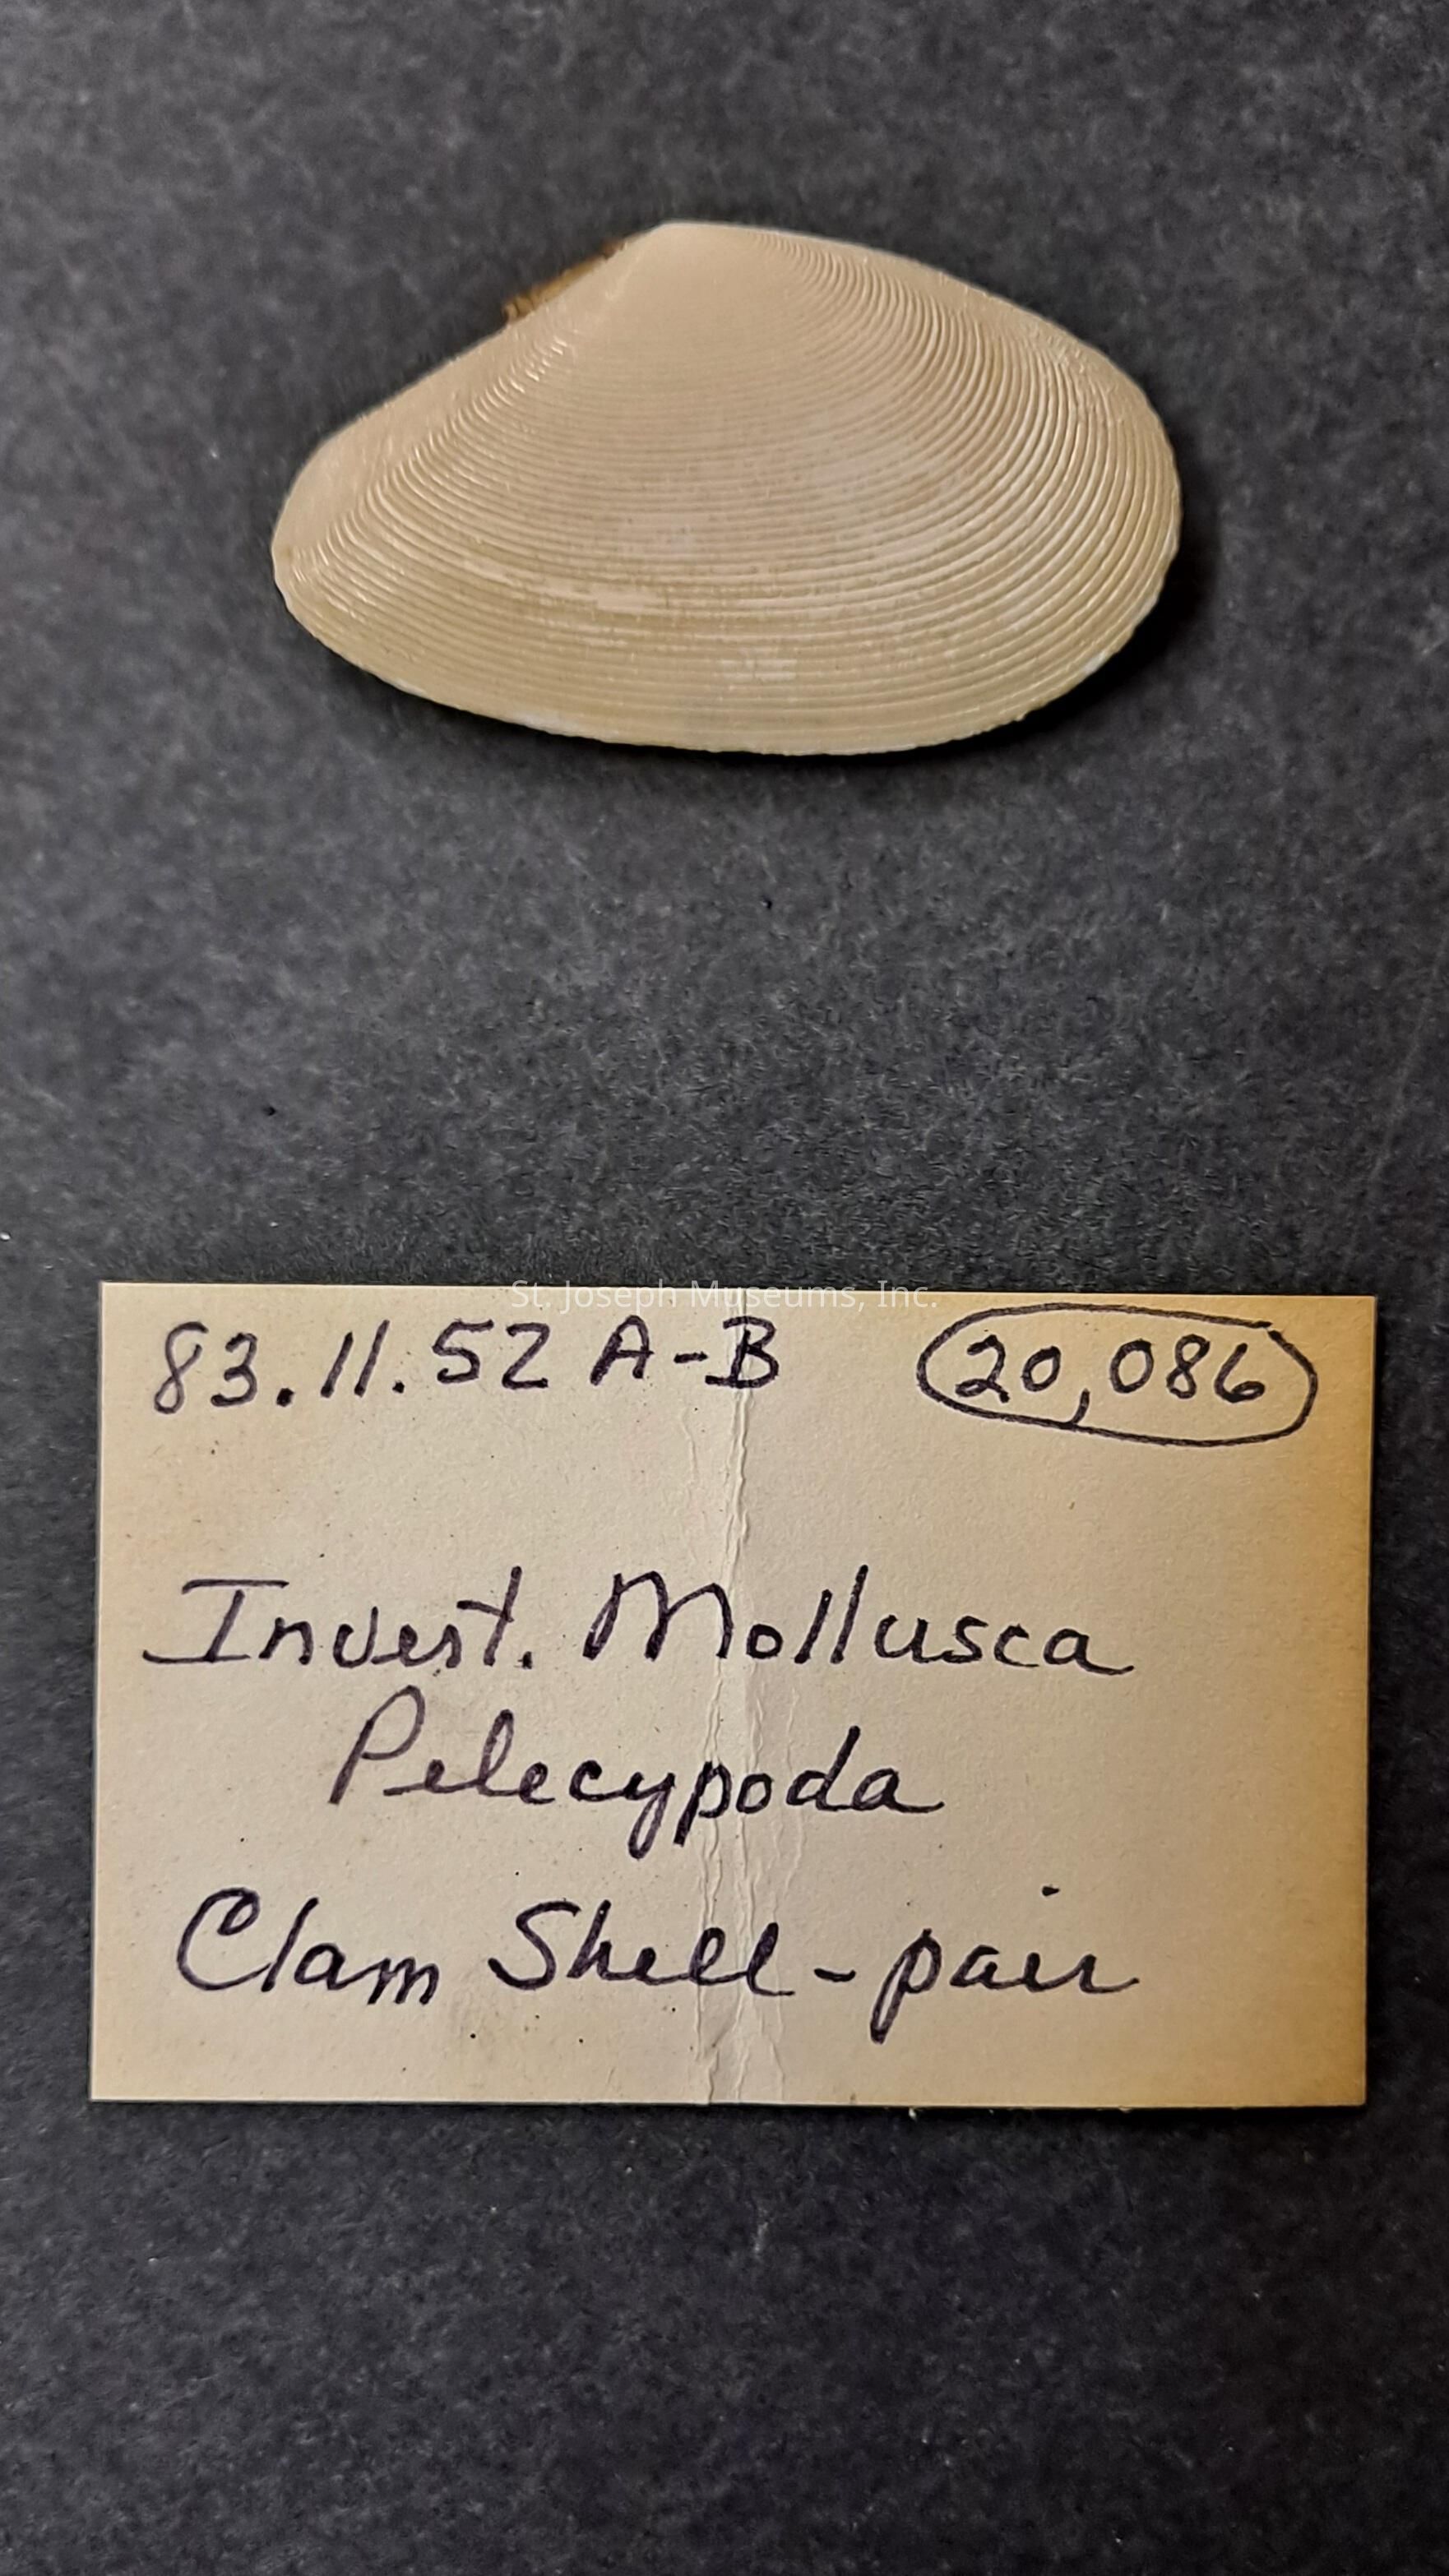 St. Joseph Museums, Inc.
83.11.52 A-B 20,086
Invert. Mollusca
Pelecypoda
Clam Shell-pair